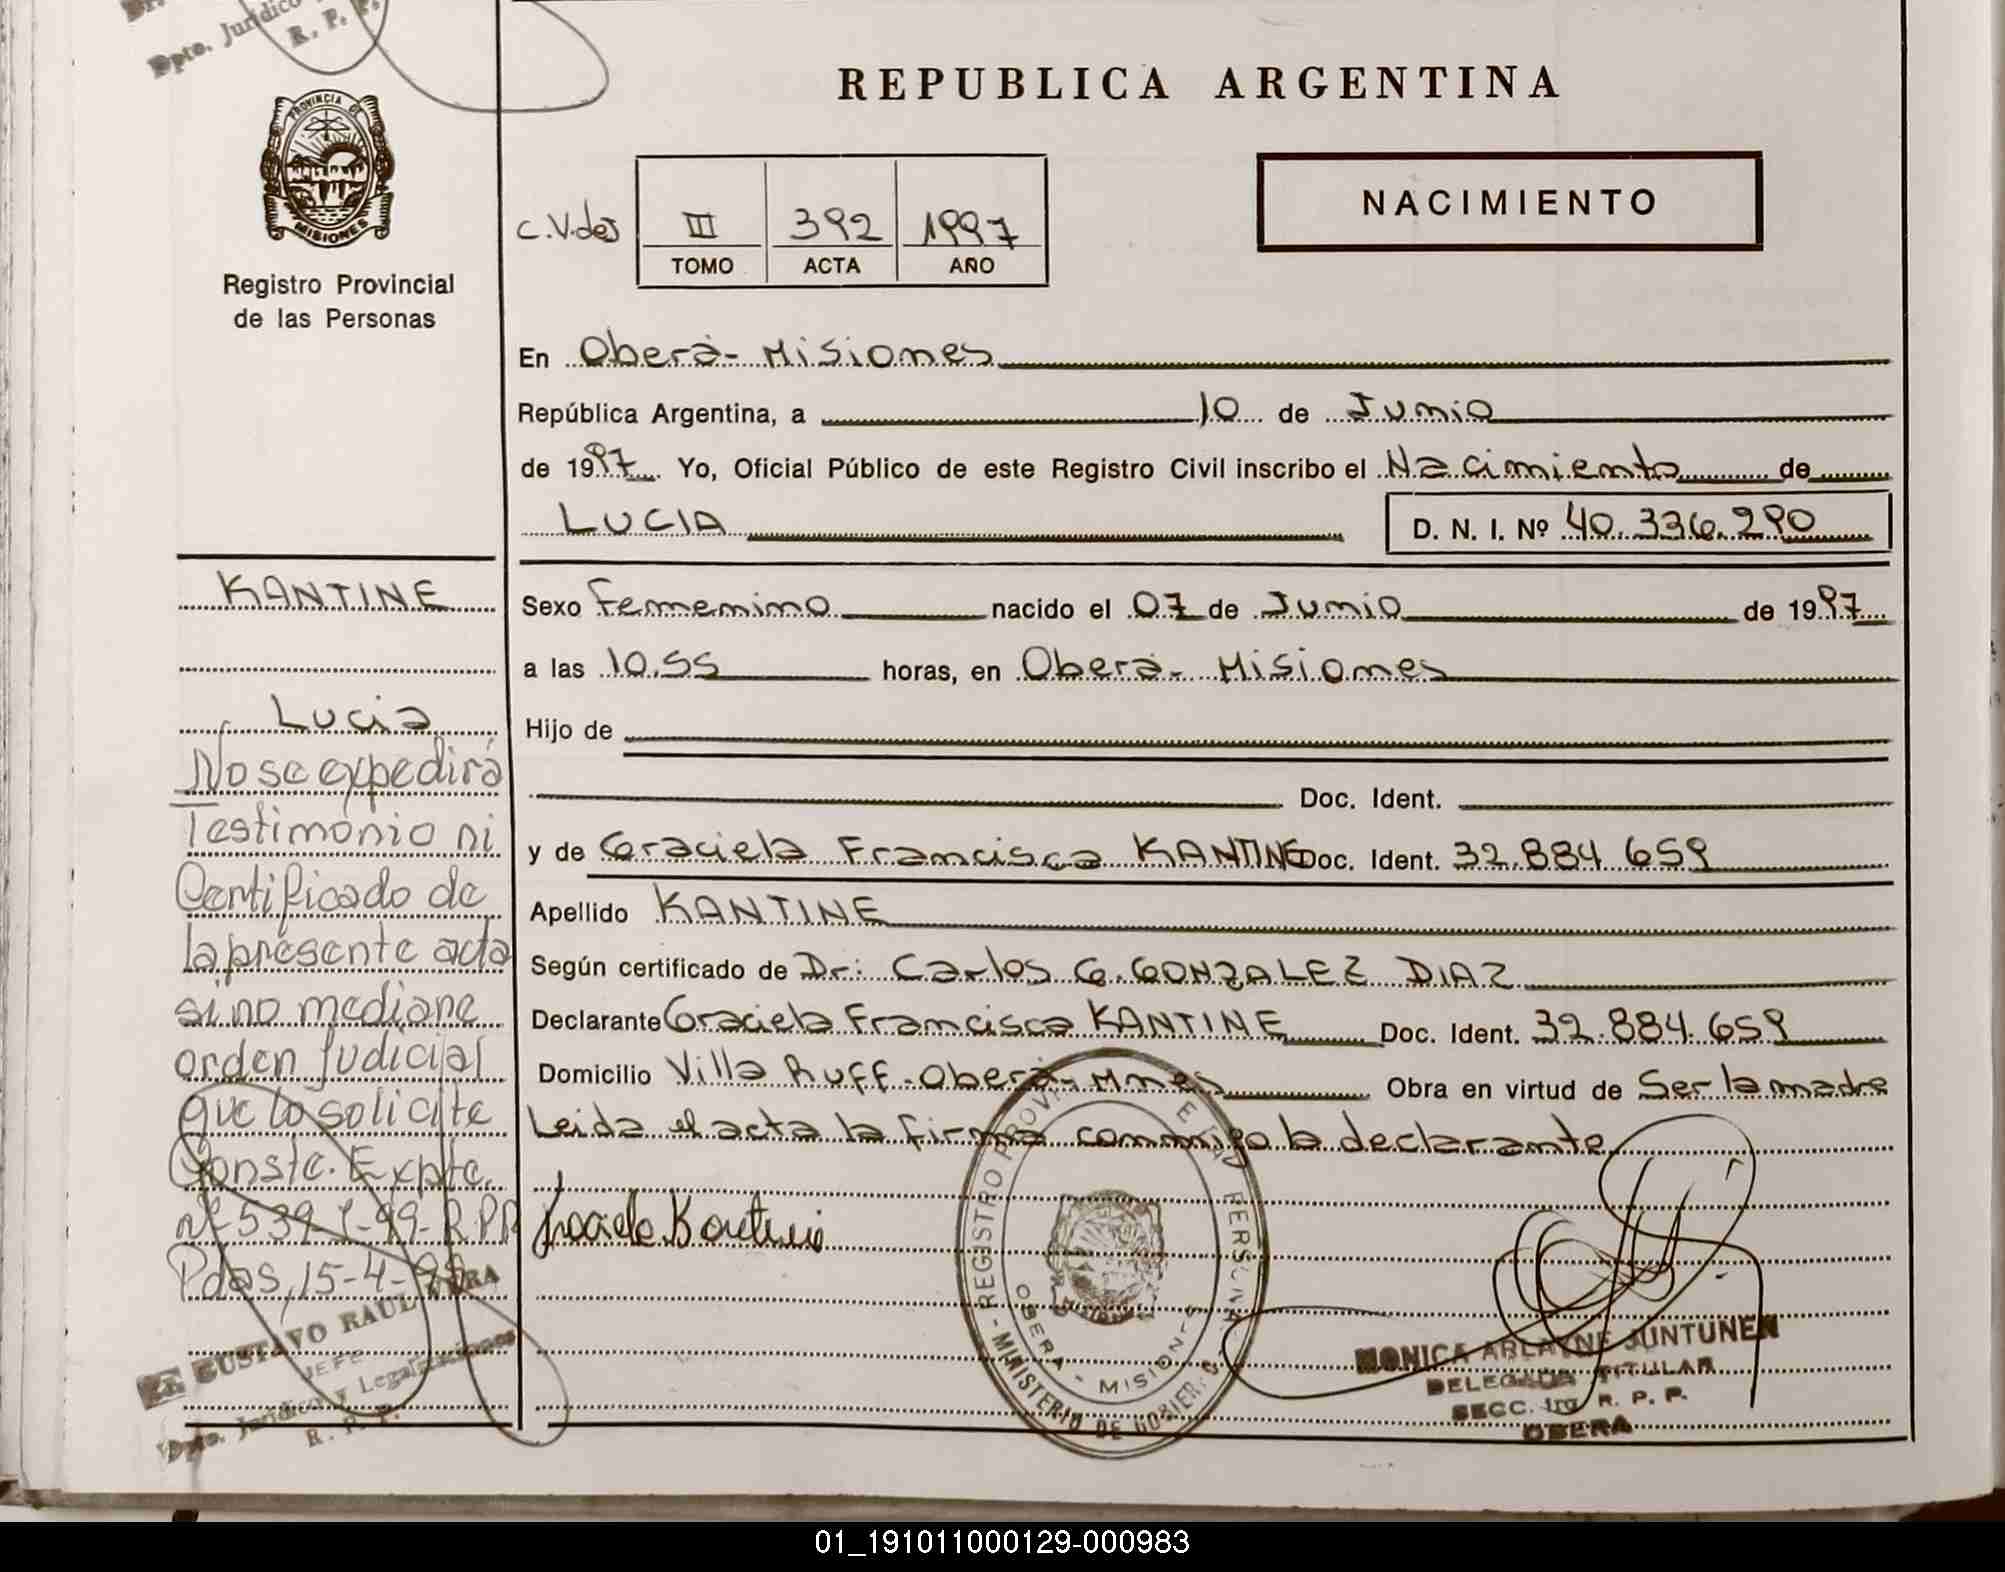 Dpto. Jurídico
R. P. P.
PROVINCIA DE
MISIONES
Registro Provincial
de las Personas
REPUBLICA ARGENTINA
NACIMIENTO
C.V.des III 392 1997
TOMO ACTA AÑO
En Oberá- Misiones
República Argentina, a 10 de Junio
de 1997 Yo, Oficial Público de este Registro Civil inscribo el Nacimiento de
LUCIA D. N. I. Nº 40.336.290
Sexo Femenino nacido el 07 de Junio de 1997
a las 10.55 horas, en Oberá- Misiones
Hijo de
Doc. Ident.
y de Graciela Francisca KANTINE Doc. Ident. 32.884.659
Apellido KANTINE
Según certificado de Dr: Carlos G. GONZALEZ DIAZ
Declarante Graciela Francisca KANTINE Doc. Ident. 32.884.659
Domicilio Villa Ruff-Oberá-Mnes Obra en virtud de Ser la madre
Leida el acta la firma conmigo la declarante
KANTINE
Lucia
No se expedirá
Testimonio ni
Certificado de
la presente acta
si no mediane
orden Judicial
que lo solicite
Conste. Expte.
Pdas, 15-4-99
GUSTAVO RAUL
JEFE
Dpto. Jurídico y Legalizaciones
R. P. P.
REGISTRO PROV
- MINISTERIO DE GOBIERNO
OBERA - MISIONES
MONICA ARLAYNE JUNTUNEN
DELEGADA TITULAR
SECC. 1ra R. P. P.
OBERA
01_191011000129-000983